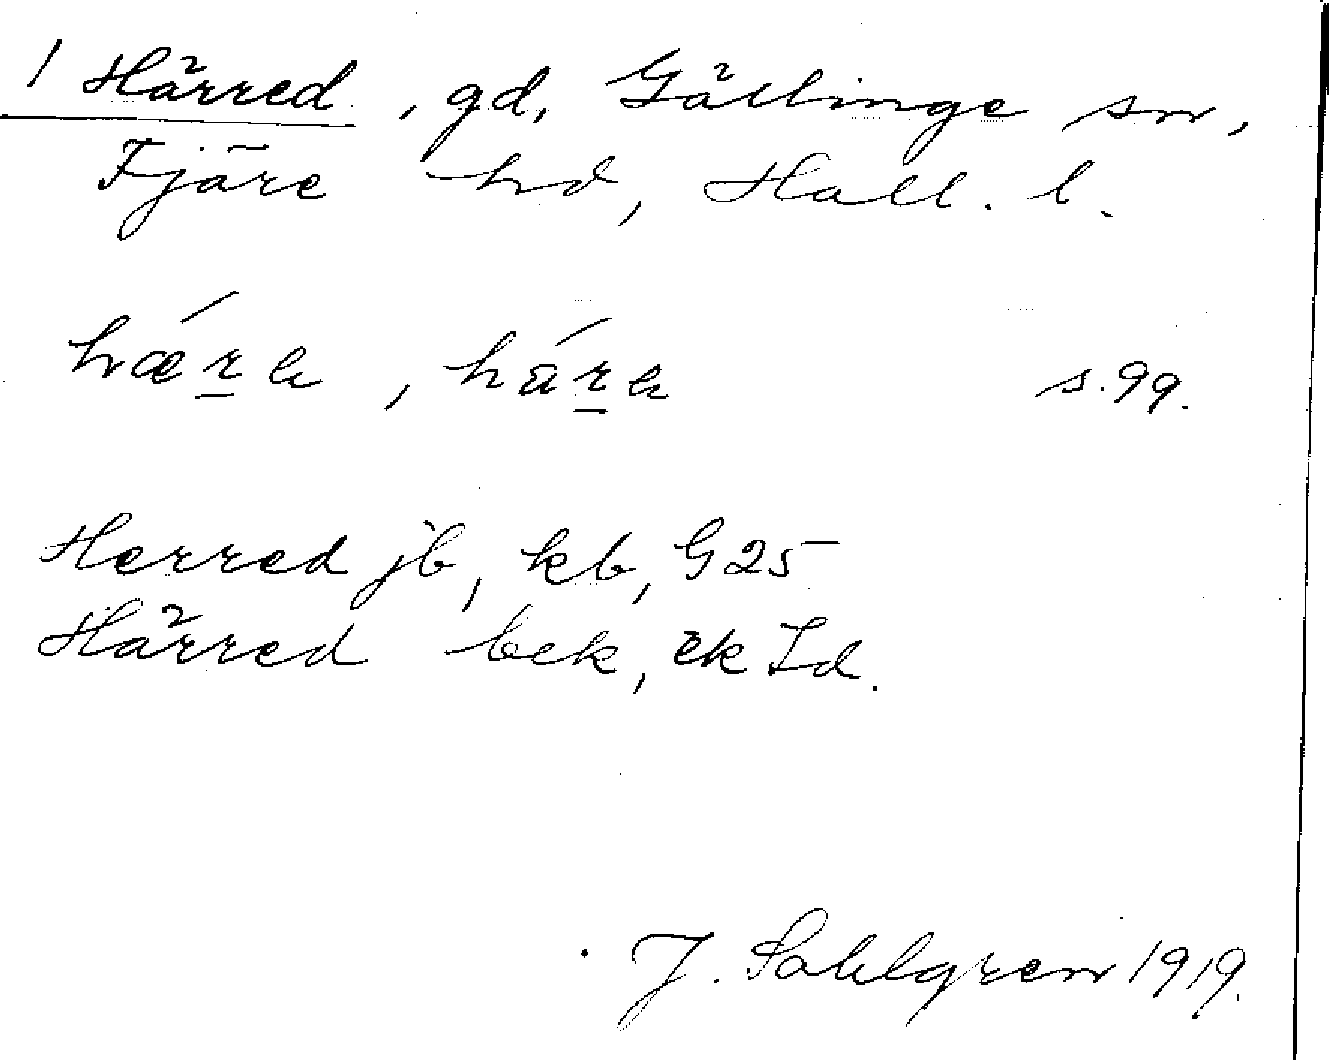 1 Härred, gd, Gällinge sn,
Fjäre hd, Hall. l.
hǽr̲a, hár̲a s. 99.
Herred jb, kb, G 25
Härred bek, ek Id.
J. Sahlgren 1919.